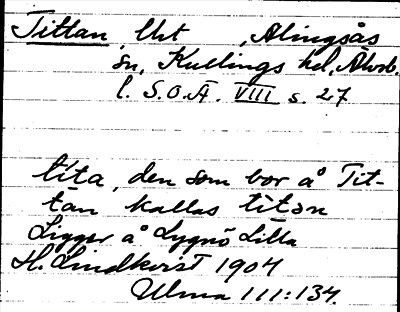 Tittan, lht, Alingsås
sn, Kullings hd, Älvsb.
l. S.O.Ä. VIII s. 27
títa, den som bor å Tit-
tan kallas titən
Ligger å Lygnö Lilla
H. Lindkvist 1904
Ulma 111:134.